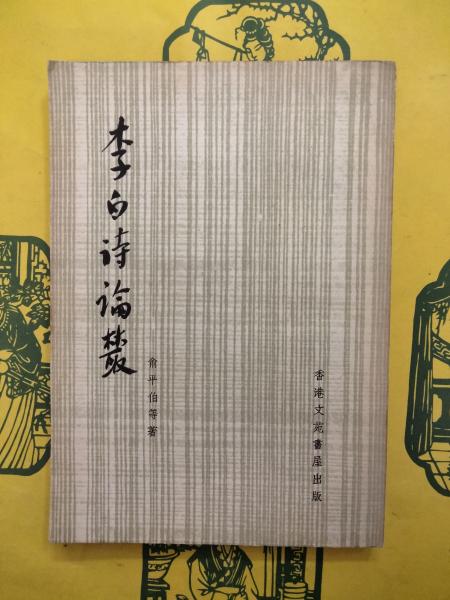 李白詩論叢
俞平伯等著
香港文苑書屋出版